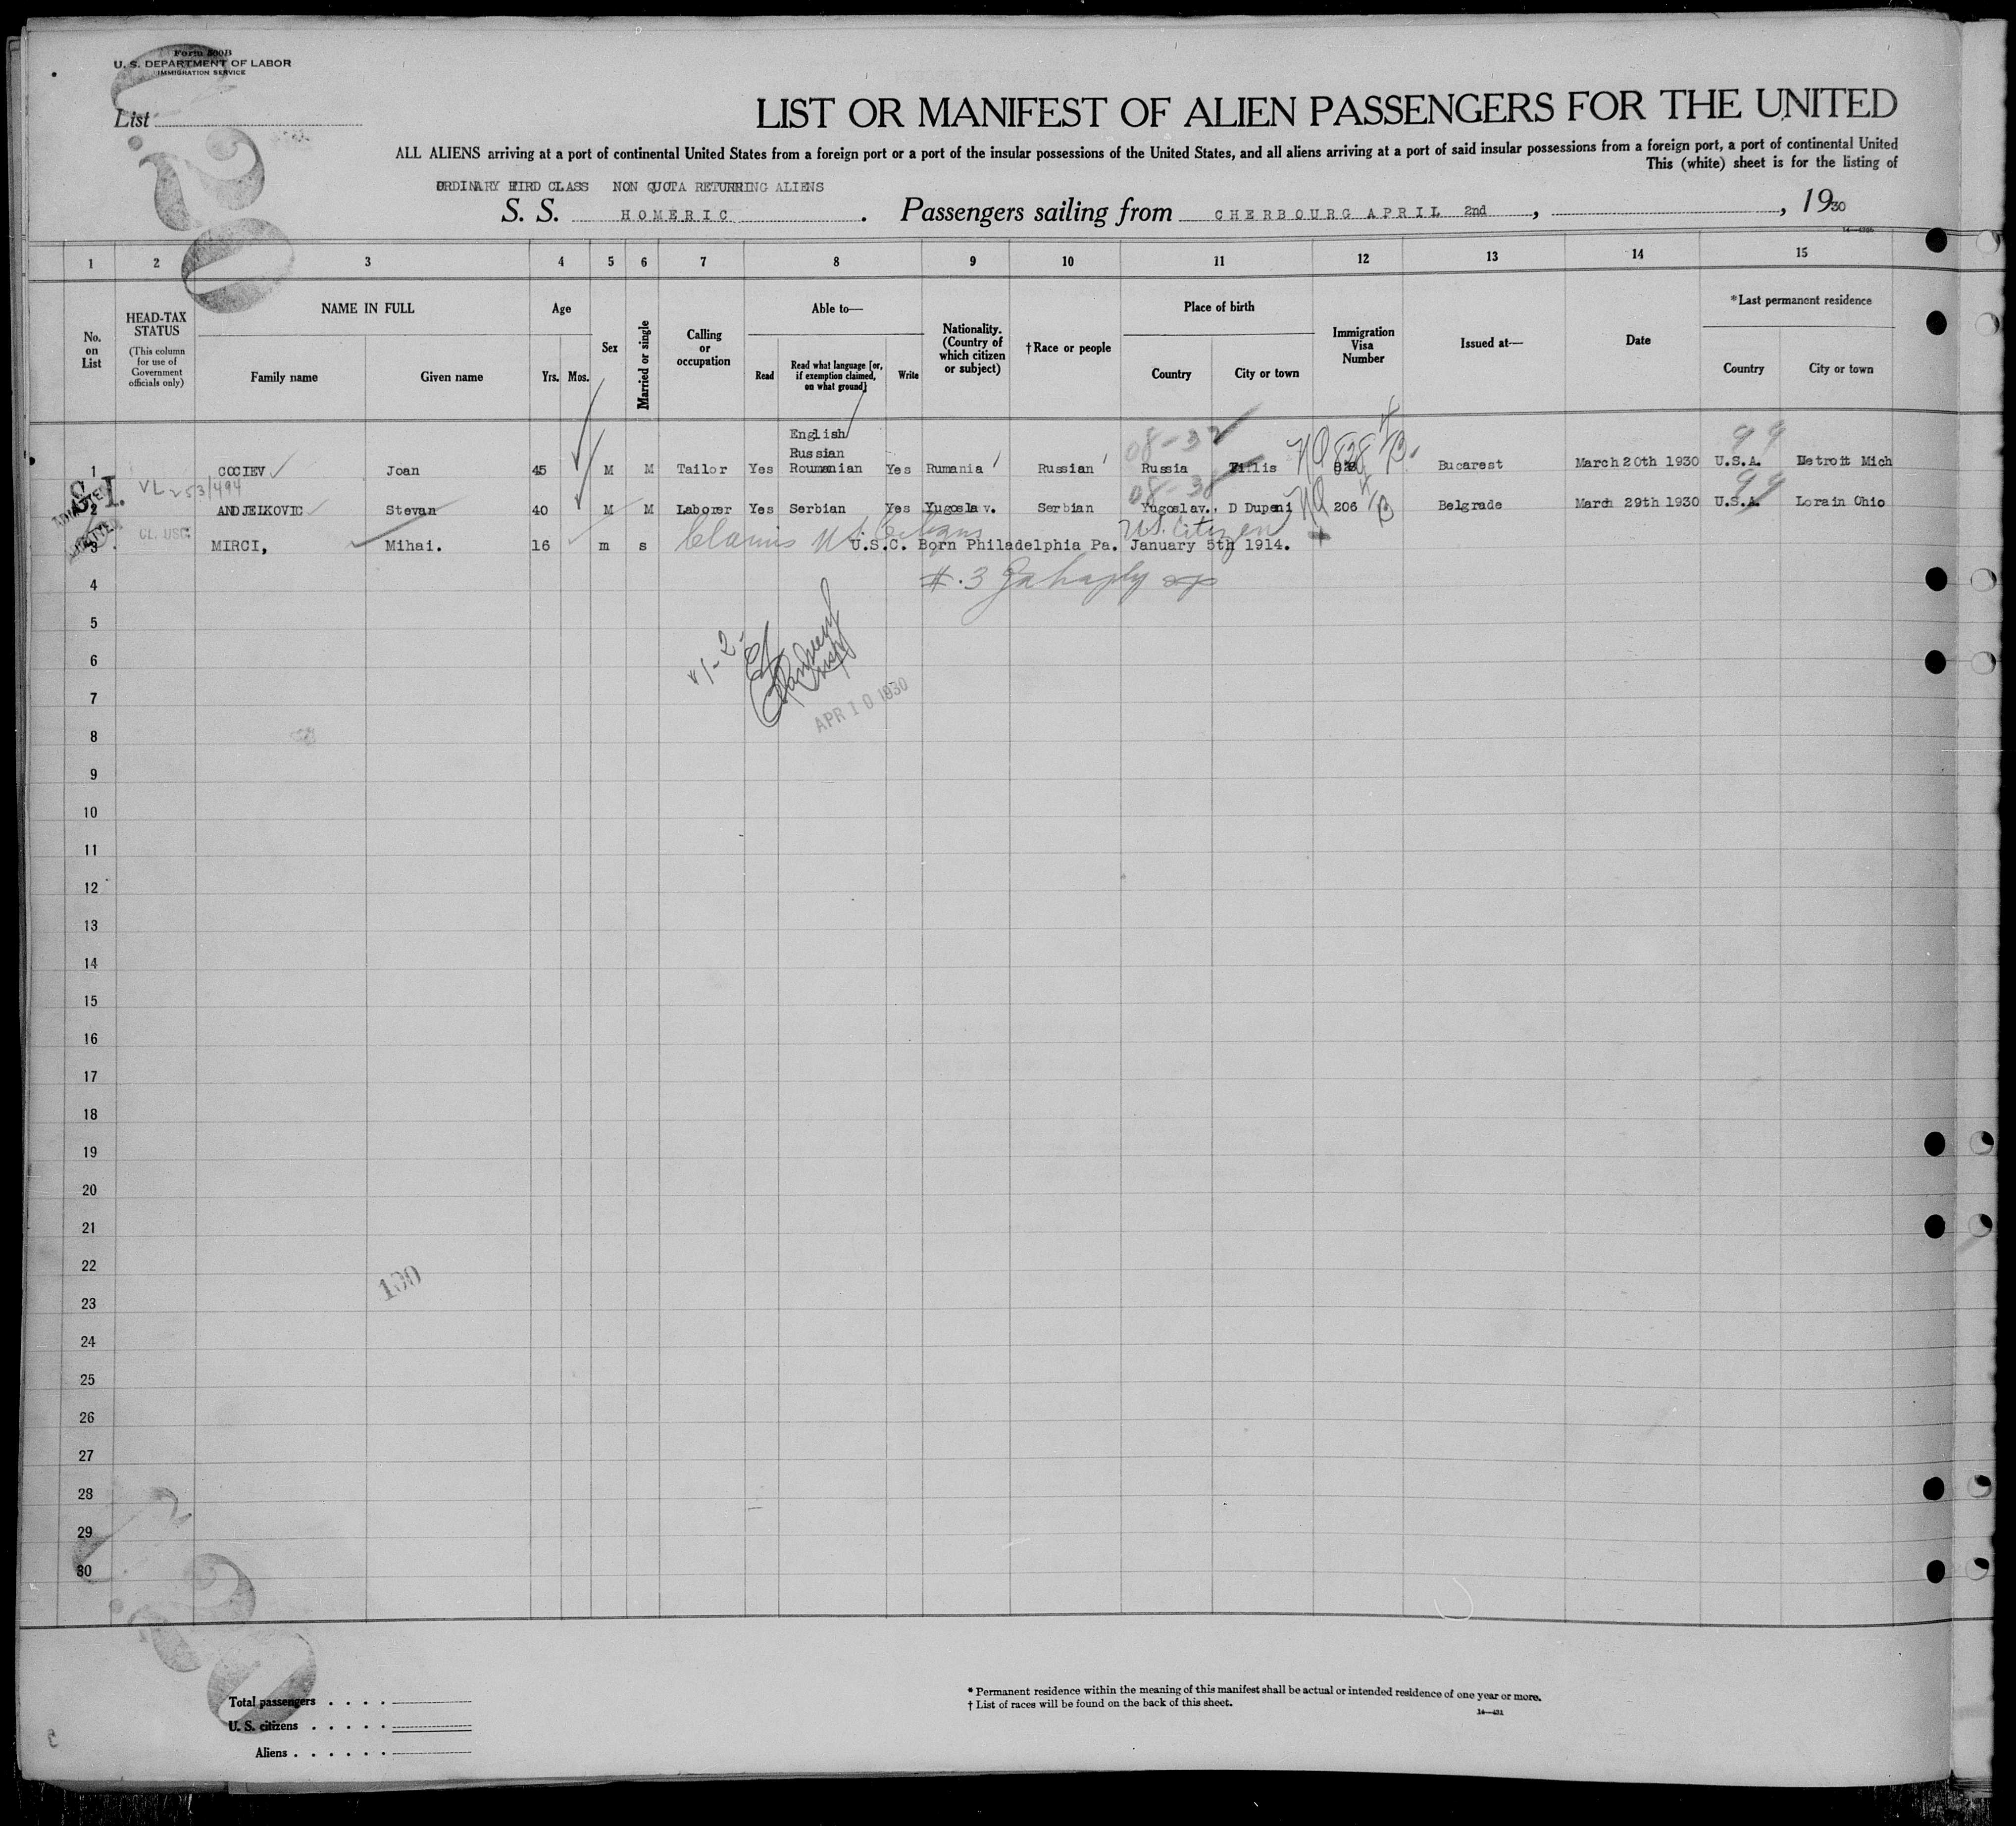 Form 500B
U. S. DEPARTMENT OF LABOR
IMMIGRATION SERVICE
List
LIST OR MANIFEST OF ALIEN PASSENGERS FOR THE UNITED
ALL ALIENS arriving at a port of continental United States from a foreign port or a port of the insular possessions of the United States, and all aliens arriving at a port of said insular possessions from a foreign port, a port of continental United
This (white) sheet is for the listing of
ORDINARY HIRD CLASS NON QUOTA RETURNING ALIENS
S. S. HOMERIC. Passengers sailing from CHERBOURG APRIL 2nd, , 1930
1 2 3 4 5 6 7 8 9 10 11 12 13 14 15
No. on List
HEAD-TAX STATUS
(This column for use of Government officials only)
NAME IN FULL
Family name Given name
Age
Yrs. Mos.
Sex
Married or single
Calling or occupation
Able to—
Read Read what language [or, if exemption claimed, on what ground] Write
Nationality. (Country of which citizen or subject)
†Race or people
Place of birth
Country City or town
Immigration Visa Number
Issued at—
Date
*Last permanent residence
Country City or town
English
Russian
08-32 99
1 COCIEV Joan 45 M M Tailor Yes Roumanian Yes Rumania Russian Russia Tiflis NQ 828 Bucarest March 20th 1930 U.S.A. Detroit Mich
S.I. VL 253/494
08-38 99
2 ANDJELKOVIC Stevan 40 M M Laborer Yes Serbian Yes Yugoslav. Serbian Yugoslav. D Dupeni NQ 206 Belgrade March 29th 1930 U.S.A. Lorain Ohio
CL. USC.
Claims U.S. Citizens U.S. Citizen
3 MIRCI, Mihai. 16 m s U.S.C. Born Philadelphia Pa. January 5th 1914.
4 #.3
5
6
7
APR 10 1930
8
9
10
11
12
13
14
15
16
17
18
19
20
21
22
100
23
24
25
26
27
28
29
30
Total passengers
U. S. citizens
Aliens
* Permanent residence within the meaning of this manifest shall be actual or intended residence of one year or more.
† List of races will be found on the back of this sheet.